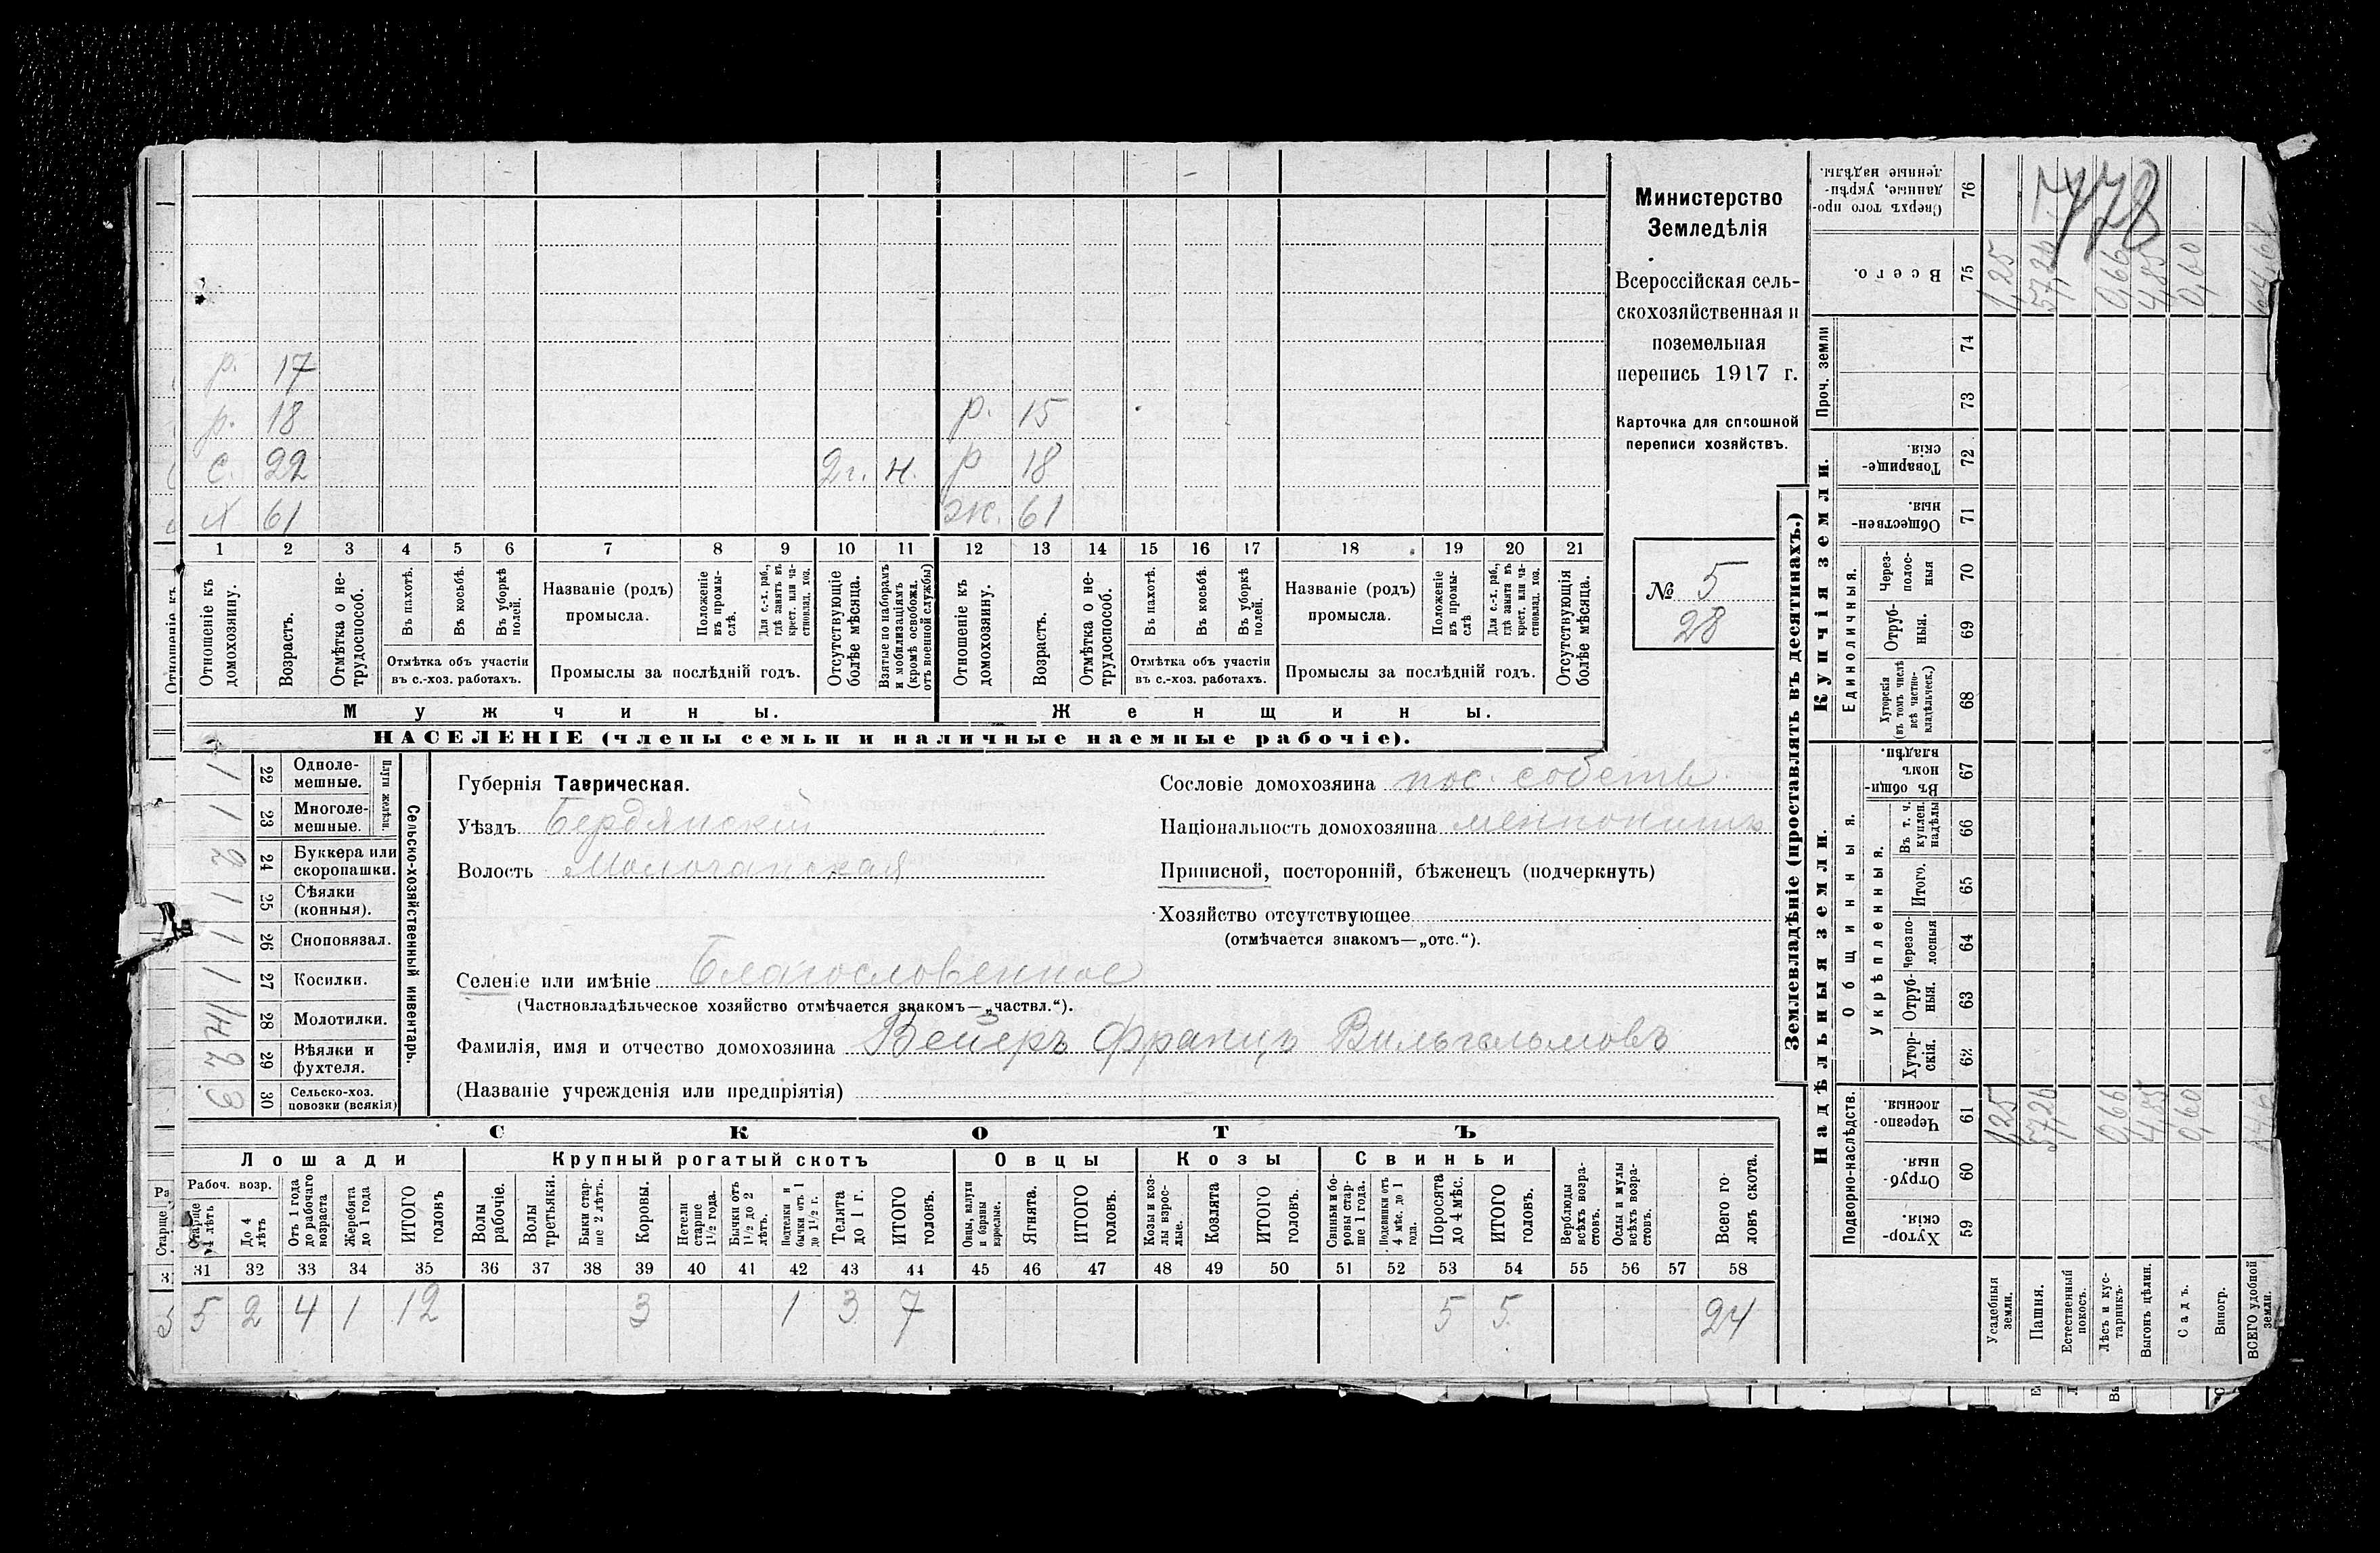 р. 17
р. 18 р. 15
с. 22 2г. н. р 18
х 61 ж. 61
1 2 3 4 5 6 7 8 9 10 11 12 13 14 15 16 17 18 19 20 21
Отношеніе къ домохозяину.
Возрастъ.
Отмѣтка о не-
трудоспособ.
Въ пахотѣ.
Въ косьбѣ.
Въ уборкѣ полей.
Отмѣтка объ участіи
въ с.-хоз. работахъ.
Названіе (родъ)
промысла.
Положеніе въ промы-
слѣ.
Для с.-х. раб., гдѣ занятъ въ крест. или ча-
стновлад. хоз.
Промыслы за послѣдній годъ.
Отсутствующіе болѣе мѣсяца.
Взятые по наборамъ и мобилизаціямъ (кромѣ освобожд. отъ военной службы)
Отношеніе къ домохозяину.
Возрастъ.
Отмѣтка о не-
трудоспособ.
Въ пахотѣ.
Въ косьбѣ.
Въ уборкѣ полей.
Отмѣтка объ участіи
въ с.-хоз. работахъ.
Названіе (родъ)
промысла.
Положеніе въ промы-
слѣ
Для с.-х. раб., гдѣ занята въ крест. или ча-
стновлад. хоз.
Промыслы за послѣдній годъ.
Отсутствующія болѣе мѣсяца.
Мужчины. Женщины.
НАСЕЛЕНІЕ (члены семьи и наличные наемные рабочіе).
Министерство
Земледѣлія
Всероссійская сель-
скохозяйственная и
поземельная
перепись 1917 г.
Карточка для сплошной
переписи хозяйствъ.
№ 5
28
Сельско-хозяйственный инвентарь.
Плуги желѣзн.
1 22 Одноле-
мешные.
1 23 Многоле-
мешные.
2 24 Буккера или
скоропашки.
1 25 Сѣялки
(конныя).
1 26 Сноповязал.
1 27 Косилки.
28 Молотилки.
2 29 Вѣялки и
фухтеля.
3 30 Сельско-хоз.
повозки (всякія)
Губернія Таврическая.
Уѣздъ Бердянскій
Волость Молочанская
Сословіе домохозяина пос. собств.
Національность домохозяина меннонитъ
Приписной, посторонній, бѣженецъ (подчеркнуть)
Хозяйство отсутствующее
(отмѣчается знакомъ—„отс.“).
Селеніе или имѣніе Благословенное
(Частновладѣльческое хозяйство отмѣчается знакомъ—„частвл.“).
Фамилія, имя и отчество домохозяина Вейеръ Францъ Вильгельмовъ
(Названіе учрежденія или предпріятія)
СКОТЪ
Лошади Крупный рогатый скотъ Овцы Козы Свиньи
Рабоч. возр.
Старше 4 лѣтъ
До 4 лѣтъ
Отъ 1 года до рабочаго возраста
Жеребята до 1 года
ИТОГО головъ
Волы рабочіе.
Волы третьяки.
Быки стар-
ше 2 лѣтъ.
Коровы.
Нетели старше 1½ года.
Бычки отъ 1½ до 2 лѣтъ.
Подтелки и бычки отъ 1 до 1½ г.
Телята до 1 г.
ИТОГО головъ.
Овцы, валухи и бараны взрослые.
Ягнята.
ИТОГО головъ.
Козы и коз-
лы взрос-
лые.
Козлята
ИТОГО головъ.
Свиньи и бо-
ровы стар-
ше 1 года.
Подсвинки отъ 4 мѣс. до 1 года.
Поросята до 4 мѣс.
ИТОГО головъ.
Верблюды всѣхъ возра-
стовъ.
Ослы и мулы всѣхъ возра-
стовъ.
Всего го-
ловъ скота.
31 32 33 34 35 36 37 38 39 40 41 42 43 44 45 46 47 48 49 50 51 52 53 54 55 56 57 58
5 2 4 1 12 3 1 3 7 5 5 24
Землевладѣніе (проставлять въ десятинахъ.)
Надѣльныя земли.
Купчія земли.
Проч. земли
Подворно-наслѣдств.
Общинныя.
Укрѣпленныя.
Единоличныя.
59 Хутор-
скія.
60 Отруб-
ныя.
61 Черезпо-
лосныя.
62 Хутор-
скія.
63 Отруб-
ныя.
64 Черезпо-
лосныя
65 Итого.
66 Въ т. ч. куплен. надѣлы
67 Въ общи-
номъ владѣн.
68 Хуторскія (въ томъ числѣ всѣ частно-
владѣльческ.)
69 Отруб-
ныя.
70 Через-
полос-
ныя
71 Обществен-
ныя.
72 Товарище-
скія.
73
74
75 Всего.
76 Сверхъ того про-
данные, укрѣп-
ленные надѣлы.
Усадебныя земли. 1,25 1,25
Пашня. 57,26 57,26
Естественный покосъ.
Лѣсъ и кус-
тарникъ. 0,66 0,66
Выгонъ цѣлин. 4,85 4,85
Садъ. 0,60 0,60
Виногр.
ВСЕГО удобной земли.
478